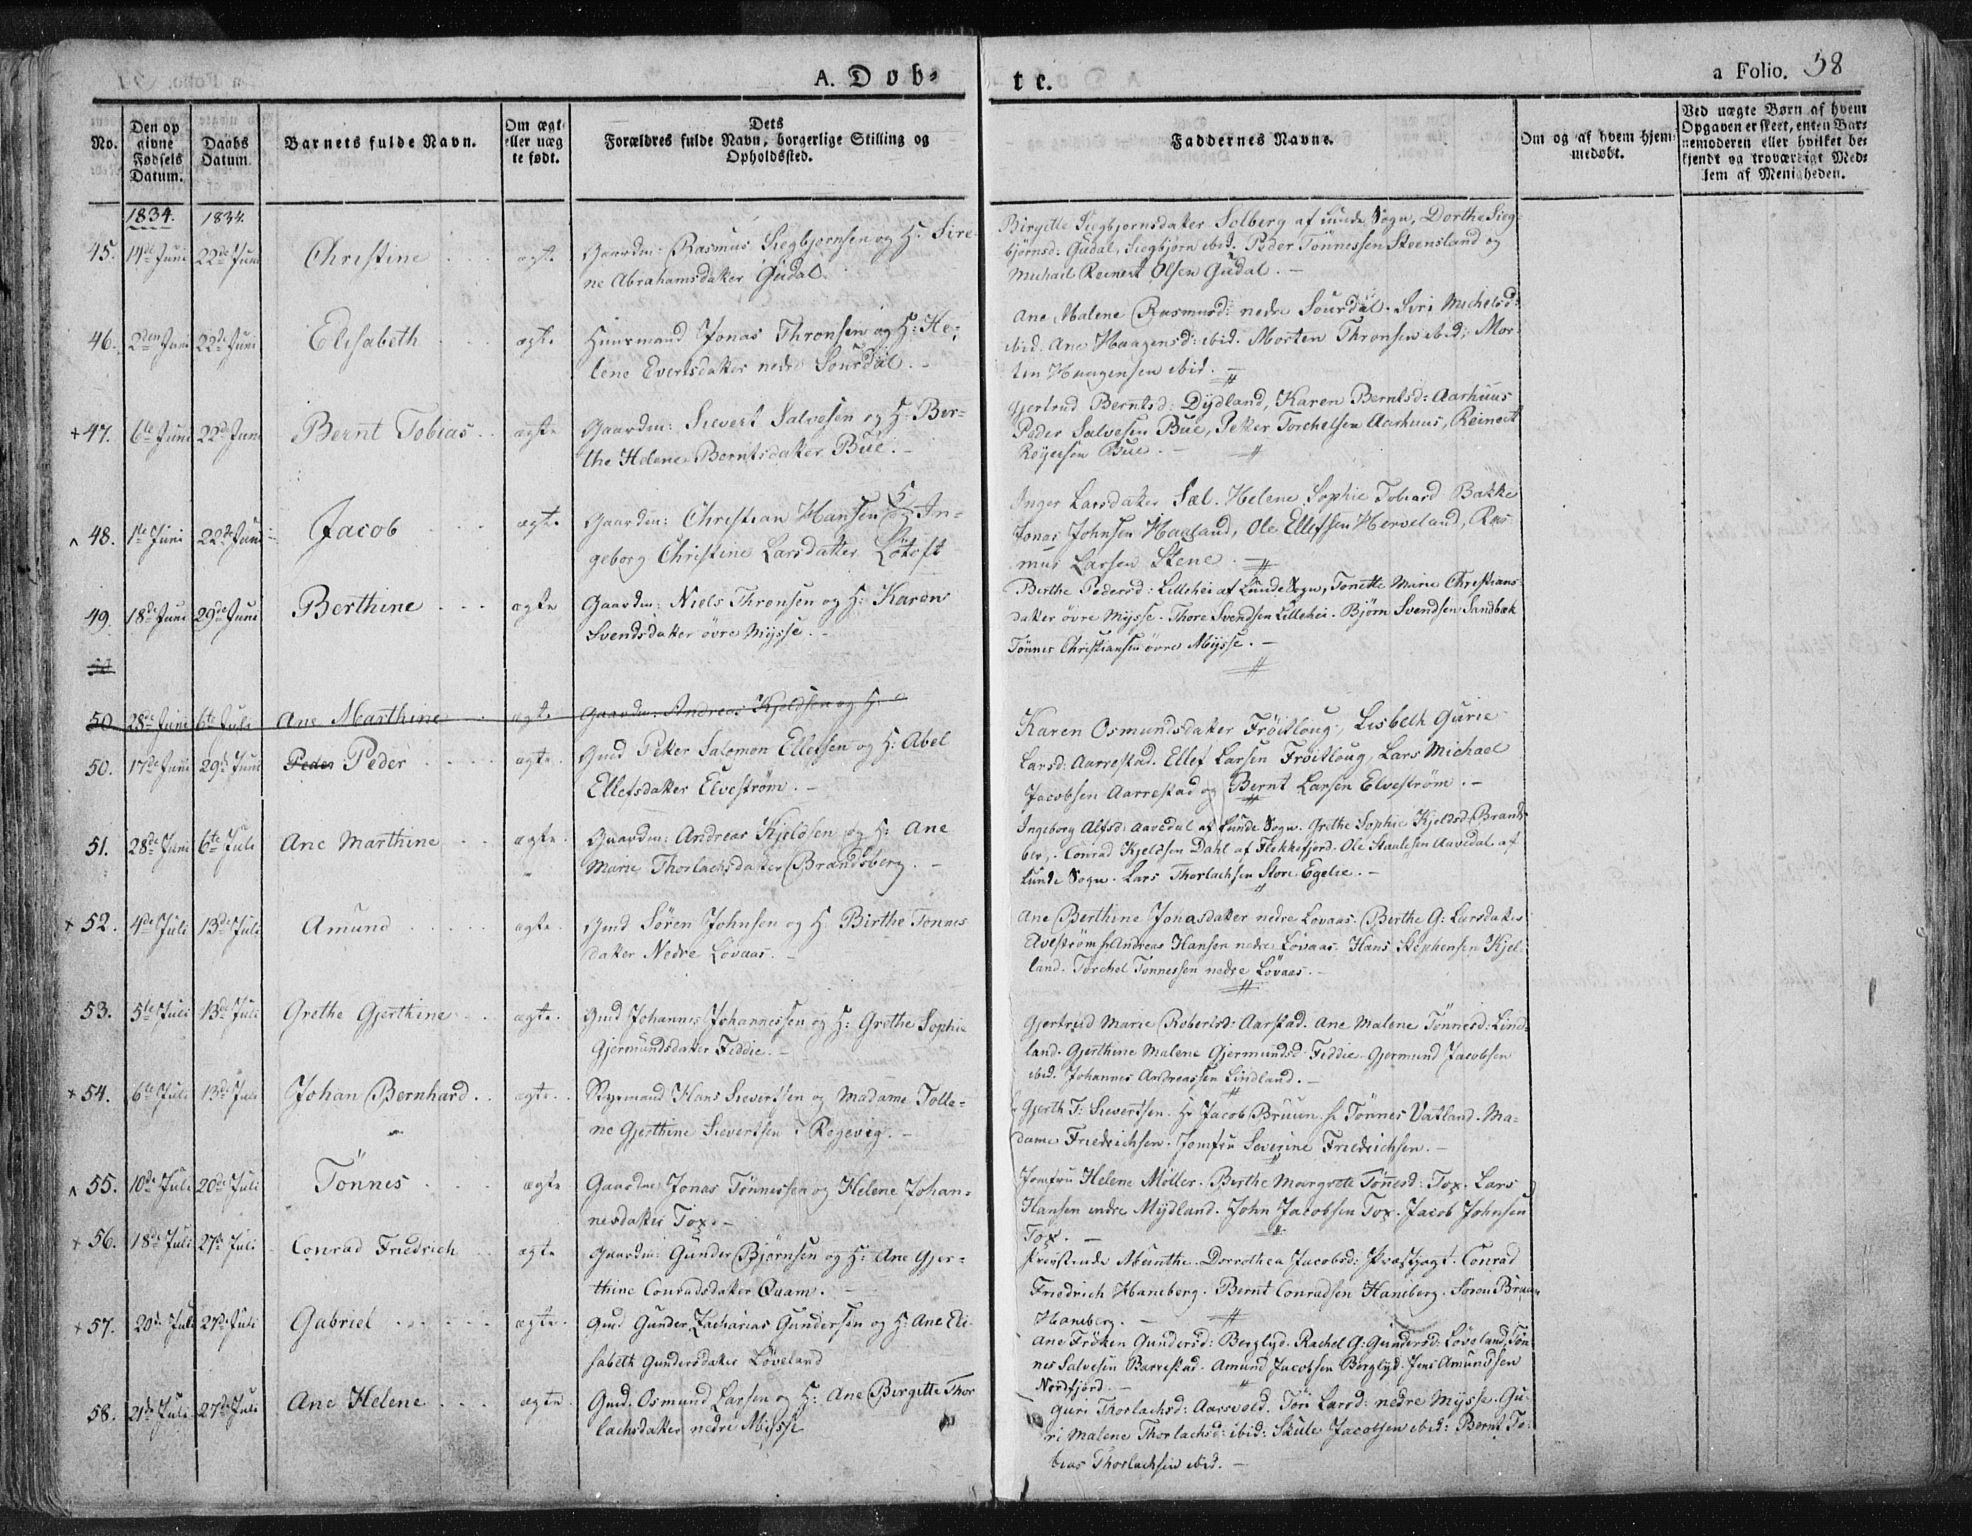 A. Døb-
te.
a Folio. 58
No.
Den op
givne
Fødsels
Datum.
Daabs
Datum.
Barnets fulde Navn.
Om ægt
eller uæg
te født.
Dets
Forældres fulde Navn, borgerlige Stilling og
Opholdssted.
Faddernes Navne.
Om og af hvem hjem
medøbt.
Ved uægte Børn af hvem
Opgaven er skeet, enten Bar-
nemoderen eller hvilket be-
kjendt og troværdigt Med-
lem af Menigheden.
1834. 1834.
45. 14de Juni 22de Juni Christine ægte Gaardm: Rasmus Siegbjørnsen og H. Sire-
ne Abrahamsdatter Gudal.
Birgitte Siegbjørnsdatter Solberg af Lunde Sogn, Dorthe Sieg-
bjørnsd: Gudal, Siegbjørn ibid. Peder Tønnessen Steensland og
Michael Reinert Olsen Gudal. -
46. 2den Juni 22de Juni Elisabeth ægte Huusmand Jonas Thronsen og H: He-
lene Evertsdatter nedre Sourdal. -
Ane Malene Rasmusd: nedre Sourdal. Siri Michelsd:
ibid. Ane Haagensd: ibid. Morten Thronsen ibid; Mor-
ten Haagensen ibid. -
+ 47. 6te Juni 22de Juni Bernt Tobias ægte Gaardm: Sievert Salvesen og H: Ber-
the Helene Berntsdatter Bue. -
Gjertrud Berntsd: Dydland, Karen Berntsd: Aarhuus
Peder Salvesen Bue, Petter Torchelsen Aarhuus, Reinert
Bue. -
48. 1ste Juni 22de Juni Jacob ægte Gaardm: Christian Hansen og H In-
geborg Christine Larsdatter Løtoft
Inger Larsdatter Sæl. Helene Sophie Tobiasd Bakke
Jonas Johnsen Haaland, Ole Ellefsen Herveland, Ras-
mus Larsen Stene. -
49. 18de Juni 29de Juni Berthine ægte Gaardm: Niels Thronsen og H: Karen
Svendsdatter øvre Mysse. -
Berthe Pedersd: Lillehei af Lunde Sogn, Tonette Marie Christians-
datter øvre Mysse. Thore Svendsen Lillehei. Bjørn Svendsen Sandbæk
Tønnes Christiansen øvre Mysse. -
50 28de Juni 6te Juli Ane Marthine ægte Gaardm: Andreas Kjeldsen og H:
50. 17de Juni 29de Juni Peder Peder ægte Gmd Peter Salomon Ellefsen og H: Abel
Ellefsdatter Elvestrøm. -
Karen Osmundsdatter Frøitloug, Lisbeth Gurie
Larsd: Aarrestad. Ellef Larsen Frøitloug, Lars Michael
Jacobsen Aarrestad og Bernt Larsen Elvestrøm. -
51. 28de Juni 6te Juli Ane Marthine ægte Gaardm: Andreas Kjeldsen og H: Ane
Marie Thorlachsdatter Brandsberg. -
Ingeborg Alfsd: Aavedal af Lunde Sogn. Grethe Sophie Kjeldsd: Brands-
ber, Conrad Kjeldsen Dahl af Flekkefjord. Ole Staalesen Aavedal af
Lunde Sogn. Lars Thorlachsen Store Egelie. -
+ 52. 4de Juli 13de Juli Amund ægte Gmd Søren Johnsen og H Birthe Tønnes
datter Nedre Løvaas. -
Ane Berthine Jonasdatter nedre Løvaas. Berthe G: Larsdatter
Andreas Hansen nedre Løvaas. Hans Stephensen Kjel-
land. Torchel Tønnessen nedre Løvaas. -
53. 5te Juli 13de Juli Grethe Gjerthine ægte Gmd Johannes Johannessen og H: Grethe Sophie
Gjermundsdatter Feddie. -
Gjertrud Marie Robertsd: Aarstad. Ane Malene Tønnesd: Lind-
land. Gjerthine Malene Gjermundsd: Feddie. Gjermund Jacobsen
ibid. Johannes Andreassen Lindland. -
+ 54. 6te Juli 13de Juli Johan Bernhard ægte Styrmand Hans Sievertsen og Madame Tolle-
ne Gjerthine Sievertsen i Regevig. -
Gjerth T: Sievertsen. Hr Jacob Bruun. Hr Tønnes Vatland. Ma-
dame Friedrichsen. Jomfru Severine Friedrichsen. -
55. 10de Juli 20de Juli Tønnes ægte Gaardm: Jonas Tønnessen og Helene Johan-
nesdatter Tox. -
Jomfru Helene Møller. Berthe Margrete Tønnesd: Tox. Lars
Hansen indre Mydland. John Jacobsen Tox. Jacob Johnsen
Tox. -
+ 56. 18de Juli 27de Juli Conrad Friedrich ægte Gaardm: Gunder Bjørnsen og H: Ane Gjer-
thine Conradsdatter Quam. -
Munthe. Dorothea Jacobsd: Præstjagt. Conrad
Friedrich Haneberg. Bernt Conradsen Haneberg. Søren Bruun
Haneberg. -
+ 57. 20de Juli 27de Juli Gabriel ægte Gmd Gunder Zacharias Gundersen og H: Ane Eli-
sabeth Gundersdatter Løveland
Ane Frøken Gundersd: Berglyd. Rachel G: Gundersd: Løveland, Tøn-
nes Salvesen Barrestad. Amund Jacobsen Berglyd. Jens Amundsen
Nordfjord. -
58. 21de Juli 27de Juli Ane Helene ægte Gmd. Osmund Larsen og H: Ane Birgitte Thor
lachsdatter nedre Mysse
Guri Thorlachsd: Aarsvold. Tøri Larsd: nedre Mysse. Gu-
ri Malene Thorlachsd: ibid: Skule Jacobsen ibid: Bernt To-
bias Thorlachsen ibid. -